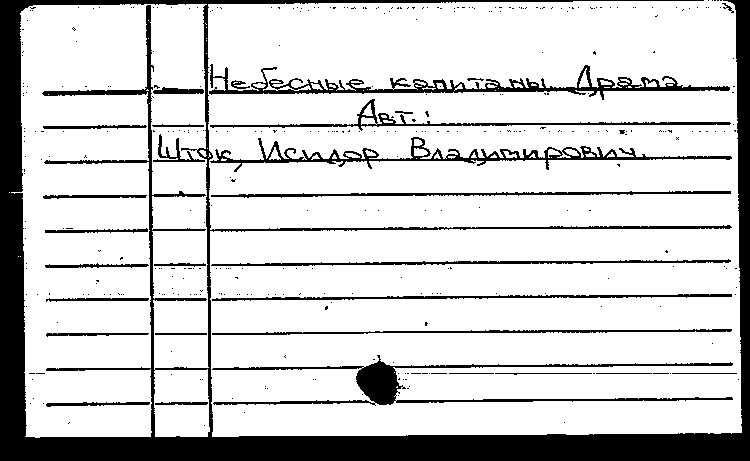 Небесные капитаны. Драма.
Авт.:
Шток, Исидор Владимирович.